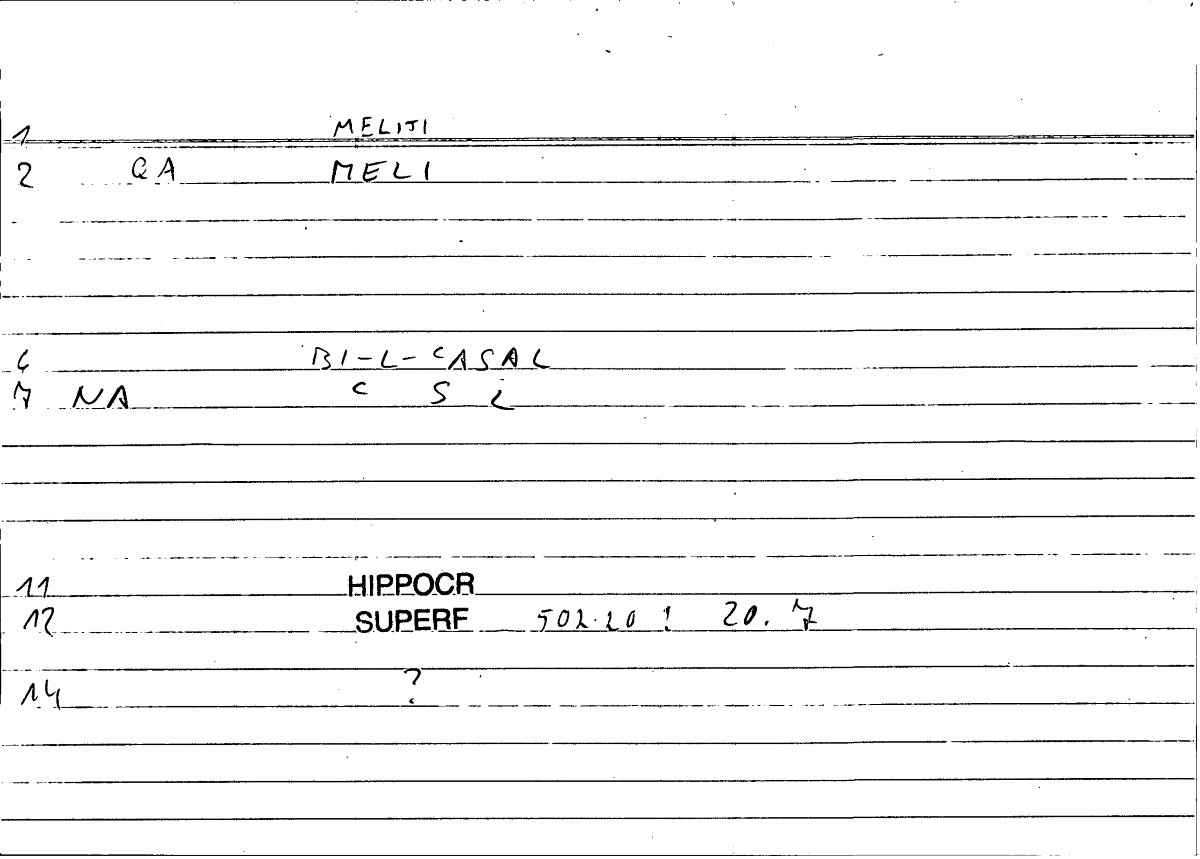 1 MELITI
2 QA MELI
6 BI-L-CASAL
7 NA C S L
11 HIPPOCR
12 SUPERF 502.20 ! 20.7
14 ?